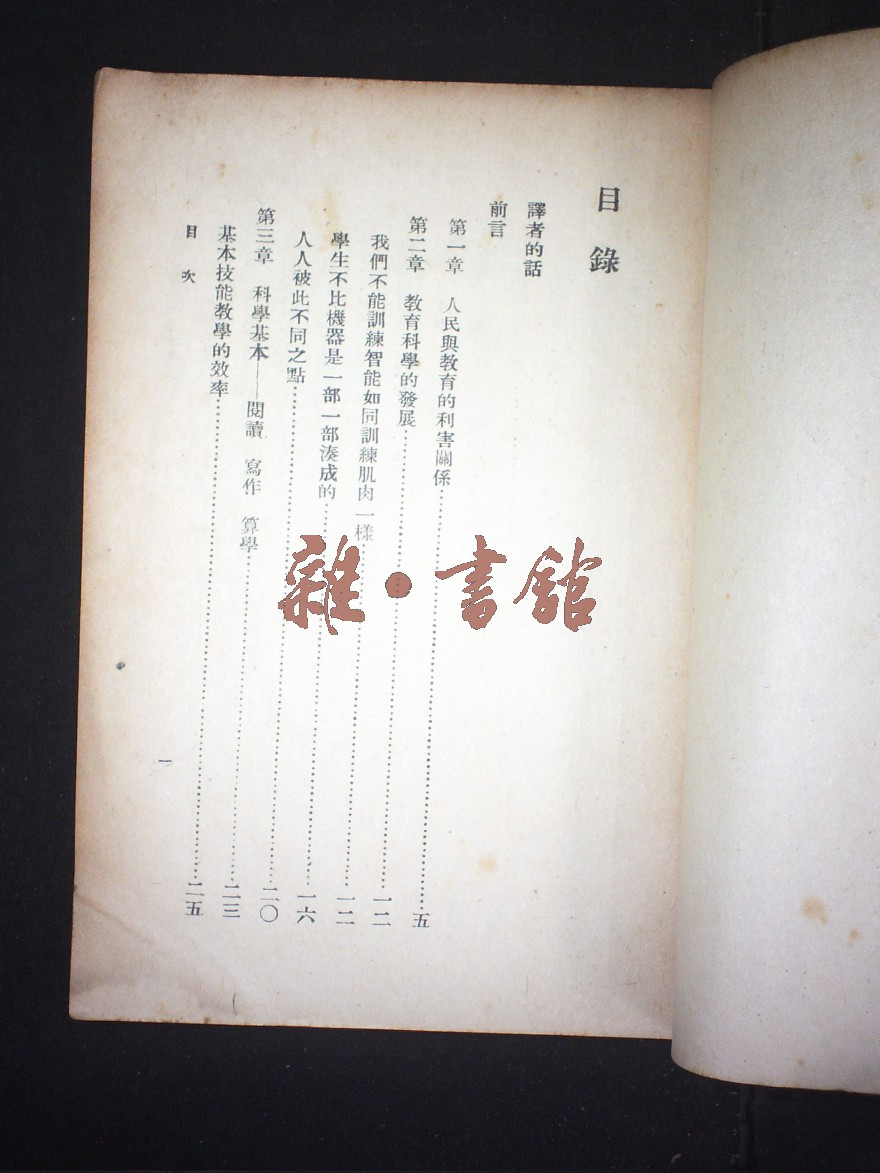 目錄
譯者的話
前言
第一章 人民與教育的利害關係……五
第二章 教育科學的發展……一二
我們不能訓練智能如同訓練肌肉一樣……一二
學生不比機器是一部一部湊成的……一六
人人被此不同之點……二〇
第三章 科學基本——閱讀 寫作 算學……二三
基本技能教學的效率……二五
目次
一
雜·書館